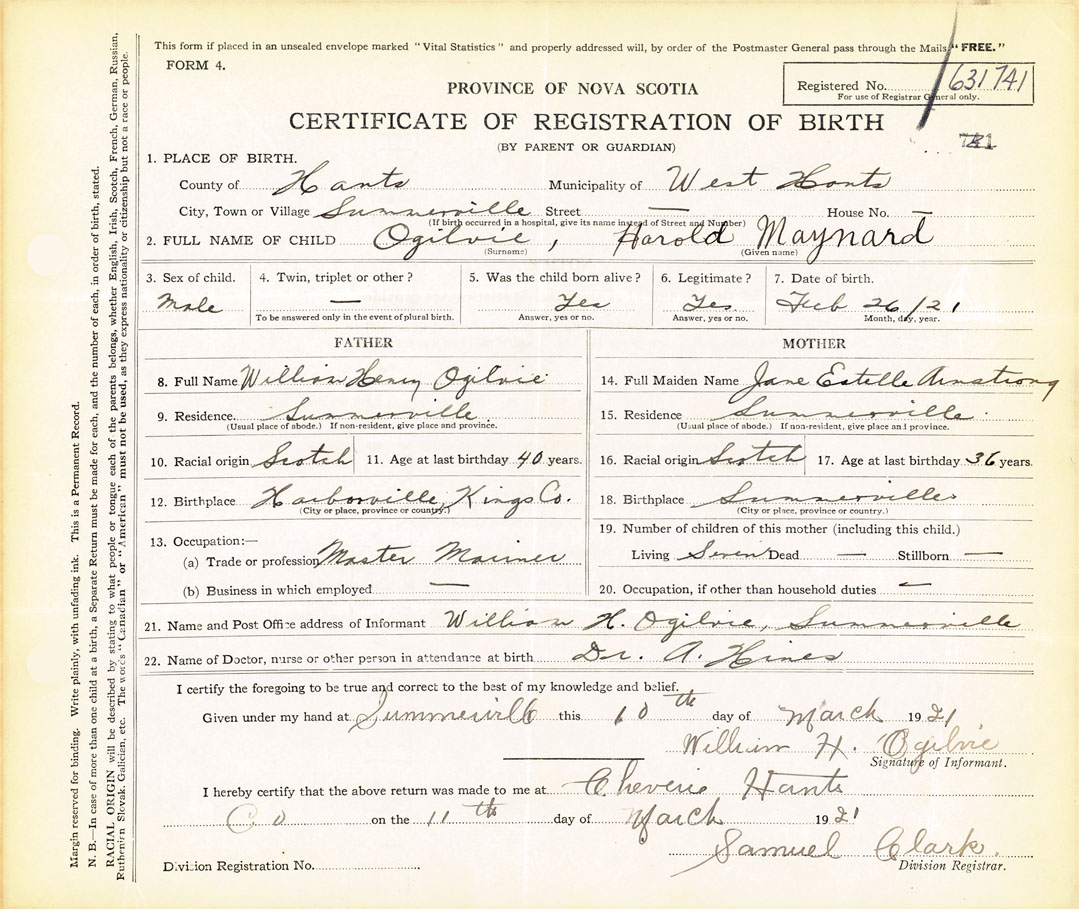 This form if placed in an unsealed envelope marked "Vital Statistics" and properly addressed will, by order of the Postmaster General pass through the Mails "FREE."
FORM 4.
Registered No. 631741
For use of Registrar General only.
PROVINCE OF NOVA SCOTIA
CERTIFICATE OF REGISTRATION OF BIRTH
(BY PARENT OR GUARDIAN)
1. PLACE OF BIRTH.
County of Hants Municipality of West Hants
City, Town or Village Summerville Street — House No. —
(If birth occurred in a hospital, give its name instead of Street and Number)
2. FULL NAME OF CHILD Ogilvie, Harold Maynard
(Surname) (Given name)
3. Sex of child. 4. Twin, triplet or other? 5. Was the child born alive? 6. Legitimate? 7. Date of birth.
Male — Yes Yes. Feb 26/21
To be answered only in the event of plural birth. Answer, yes or no. Answer, yes or no. Month, day, year.
FATHER
8. Full Name William Henry Ogilvie
9. Residence. Summerville
(Usual place of abode.) If non-resident, give place and province.
10. Racial origin Scotch 11. Age at last birthday 40 years.
12. Birthplace Harborville, Kings Co.
(City or place, province or country.)
13. Occupation:—
(a) Trade or profession Master Mariner
(b) Business in which employed —
MOTHER
14. Full Maiden Name Jane Estelle Armstrong
15. Residence Summerville.
(Usual place of abode.) If non-resident, give place and province.
16. Racial origin Scotch 17. Age at last birthday 36 years.
18. Birthplace Summerville
(City or place, province or country.)
19. Number of children of this mother (including this child.)
Living Seven Dead — Stillborn —
20. Occupation, if other than household duties —
21. Name and Post Office address of Informant William H. Ogilvie, Summerville
22. Name of Doctor, nurse or other person in attendance at birth Dr. A. Hines
I certify the foregoing to be true and correct to the best of my knowledge and belief.
Given under my hand at Summerville this 10th day of March 1921
William H. Ogilvie
Signature of Informant.
I hereby certify that the above return was made to me at Cheverie Hants
Co on the 11th day of March 1921
Samuel Clark.
Division Registrar.
Division Registration No.
Margin reserved for binding. Write plainly, with unfading ink. This is a Permanent Record.
N. B.—In case of more than one child at a birth, a Separate Return must be made for each, and the number of each, in order of birth, stated.
RACIAL ORIGIN will be described by stating to what people or tongue each of the parents belongs, whether English, Irish, Scotch, French, German, Russian,
Ruthenian, Slovak, Galician, etc. The words "Canadian" or "American" must not be used, as they express nationality or citizenship but not a race or people.